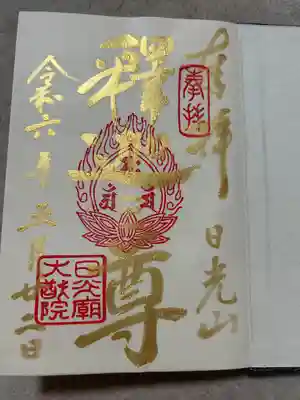 奉拝
奉拝
日光山
釋迦尊
日光廟
大猷院
令和六年五月廿二日